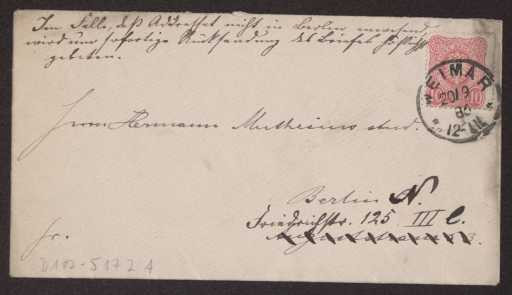 Im Falle, daß Addressat nicht in Berlin anwesend,
wird um sofortige Rücksendung des Briefes höflichst
gebeten.
WEIMAR
20/9
86
12-1N
10
Herrn Hermann Muthesius stud.
Berlin N.
Friedrichstr. 125 III l.
fr.
D102-5172 A